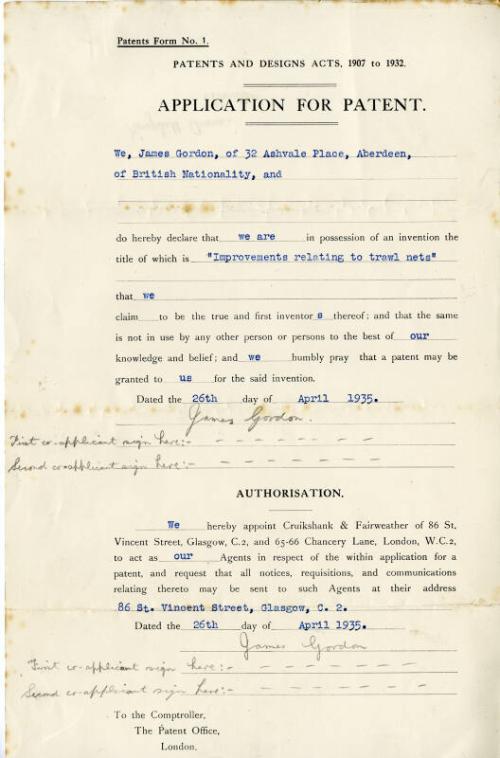 Patents Form No. 1.
PATENTS AND DESIGNS ACTS, 1907 to 1932.
APPLICATION FOR PATENT.
We, James Gordon, of 32 Ashvale Place, Aberdeen,
of British Nationality, and
do hereby declare that we are in possession of an invention the
title of which is "Improvements relating to trawl nets"
that we
claim to be the true and first inventor s thereof; and that the same
is not in use by any other person or persons to the best of our
knowledge and belief; and we humbly pray that a patent may be
granted to us for the said invention.
Dated the 26th day of April 1935.
James Gordon.
First co-applicant sign here:-
Second co-applicant sign here:-
AUTHORISATION.
We hereby appoint Cruikshank & Fairweather of 86 St.
Vincent Street, Glasgow, C.2, and 65-66 Chancery Lane, London, W.C.2,
to act as our Agents in respect of the within application for a
patent, and request that all notices, requisitions, and communications
relating thereto may be sent to such Agents at their address
86 St. Vincent Street, Glasgow, C. 2.
Dated the 26th day of April 1935.
James Gordon
First co-applicant sign here:-
Second co-applicant sign here:-
To the Comptroller,
The Patent Office,
London.